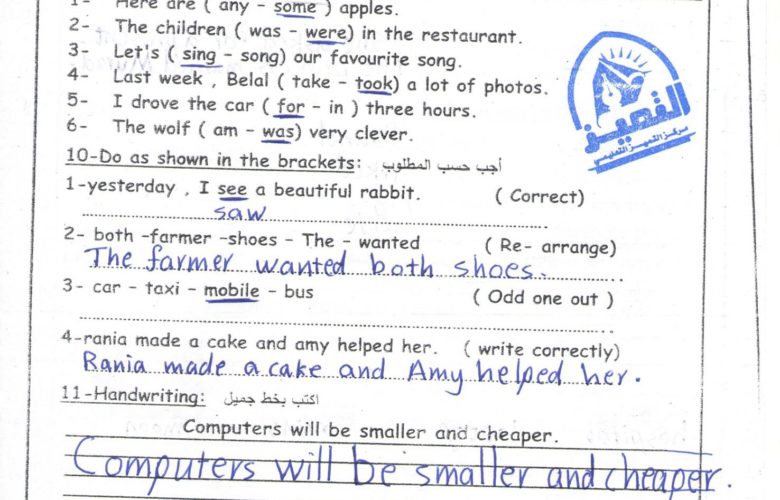 1- Here are ( any - some ) apples.
2- The children ( was - were) in the restaurant.
3- Let's ( sing - song) our favourite song.
4- Last week , Belal ( take - took) a lot of photos.
5- I drove the car ( for - in ) three hours.
6- The wolf ( am - was) very clever.
التميز
مركز التميز التعليمي
10-Do as shown in the brackets: أجب حسب المطلوب
1-yesterday , I see a beautiful rabbit. ( Correct)
saw
2- both -farmer -shoes - The - wanted ( Re- arrange)
The farmer wanted both shoes.
3- car - taxi - mobile - bus ( Odd one out )
4-rania made a cake and amy helped her. ( write correctly)
Rania made a cake and Amy helped her.
11-Handwriting: اكتب بخط جميل
Computers will be smaller and cheaper.
Computers will be smaller and cheaper.